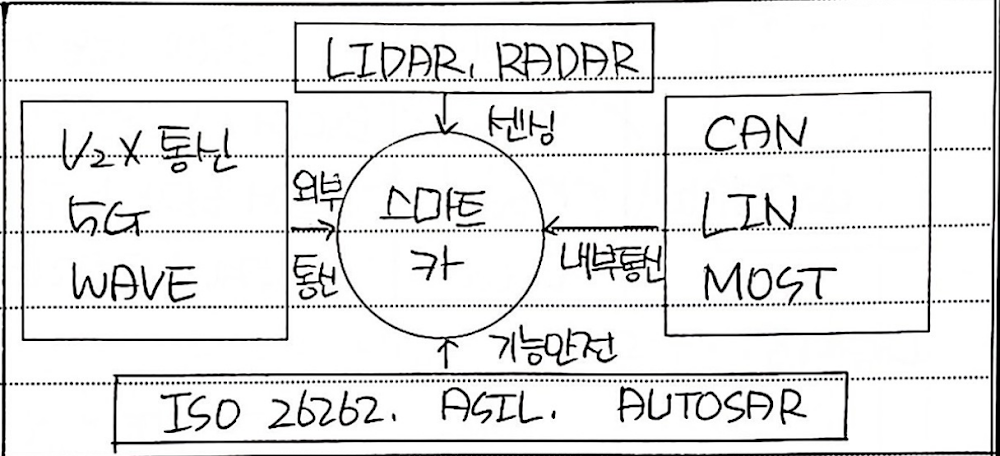 LIDAR, RADAR
센싱
V2X 통신
5G
WAVE
외부
통신
스마트
카
내부통신
CAN
LIN
MOST
기능안전
ISO 26262. ASIL. AUTOSAR